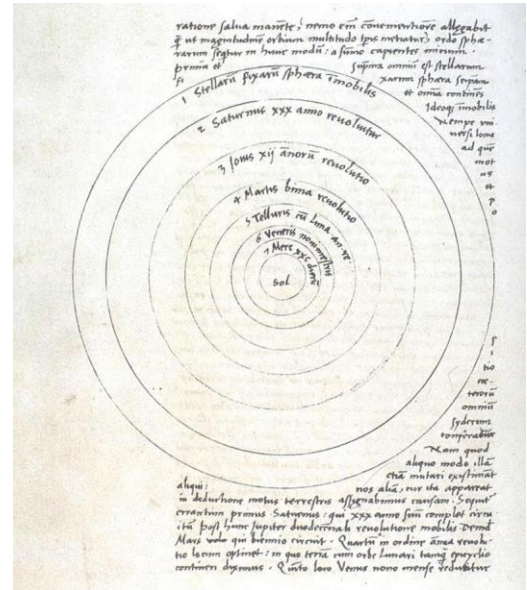 ratione salua manente, nemo em̄ conuenientiorē allegabit
q̄ ut magnitudinē orbium multitudo tp̄is metiatur, ordo sphæ-
rarum sequitur in hunc modū: a summo capientes initium.
prima et suprema omniū est stellarum
fixarum sphæra seipsam
et omnia continēs
Ideoq; īmobilis
Nempe vni
uersi locus
ad quē
mot
us
et
p
o
1 Stellarū fixarū sphæra īmobilis
2 Saturnus xxx anno reuoluitur
3 Iouis xij annorū reuolutio
4 Martis bima reuolutio
5 Telluris cū Luna an. re
6 Veneris nonimestris
7 Merc xxc dierū
Sol
s
i
tio
ne
ceterorū
omniū
syderum
conferatur
Nam quod
aliquo modo illā
etiā mutari existimāt
aliqui: nos aliā, cur ita appareat
in deductione motus terrestris assignabimus causam. Sequitur
errantium primus Saturnus: qui xxx anno suū complet circu
itū post hunc Iupiter duodecennali reuolutione mobilis Deinde
Mars qui biennio circuit. Quartū in ordine annua reuolu-
tio locum optinet: in quo terrā cum orbe Lunari tanq̄ epicyclo
contineri diximus. Quinto loco Venus nono mense reducitur